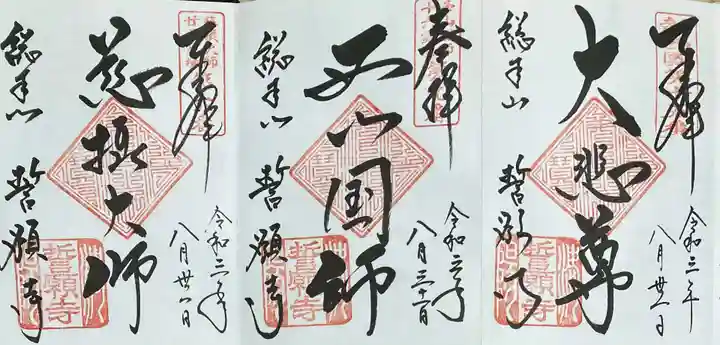 奉拝
大悲尊
令和三年
八月卅一日
総本山
誓願寺
誓願寺
奉拝
西山国師
令和三年
八月三十一日
総本山
誓願寺
誓願寺
奉拝
慈摂大師
令和三年
八月卅一日
総本山
誓願寺
誓願寺